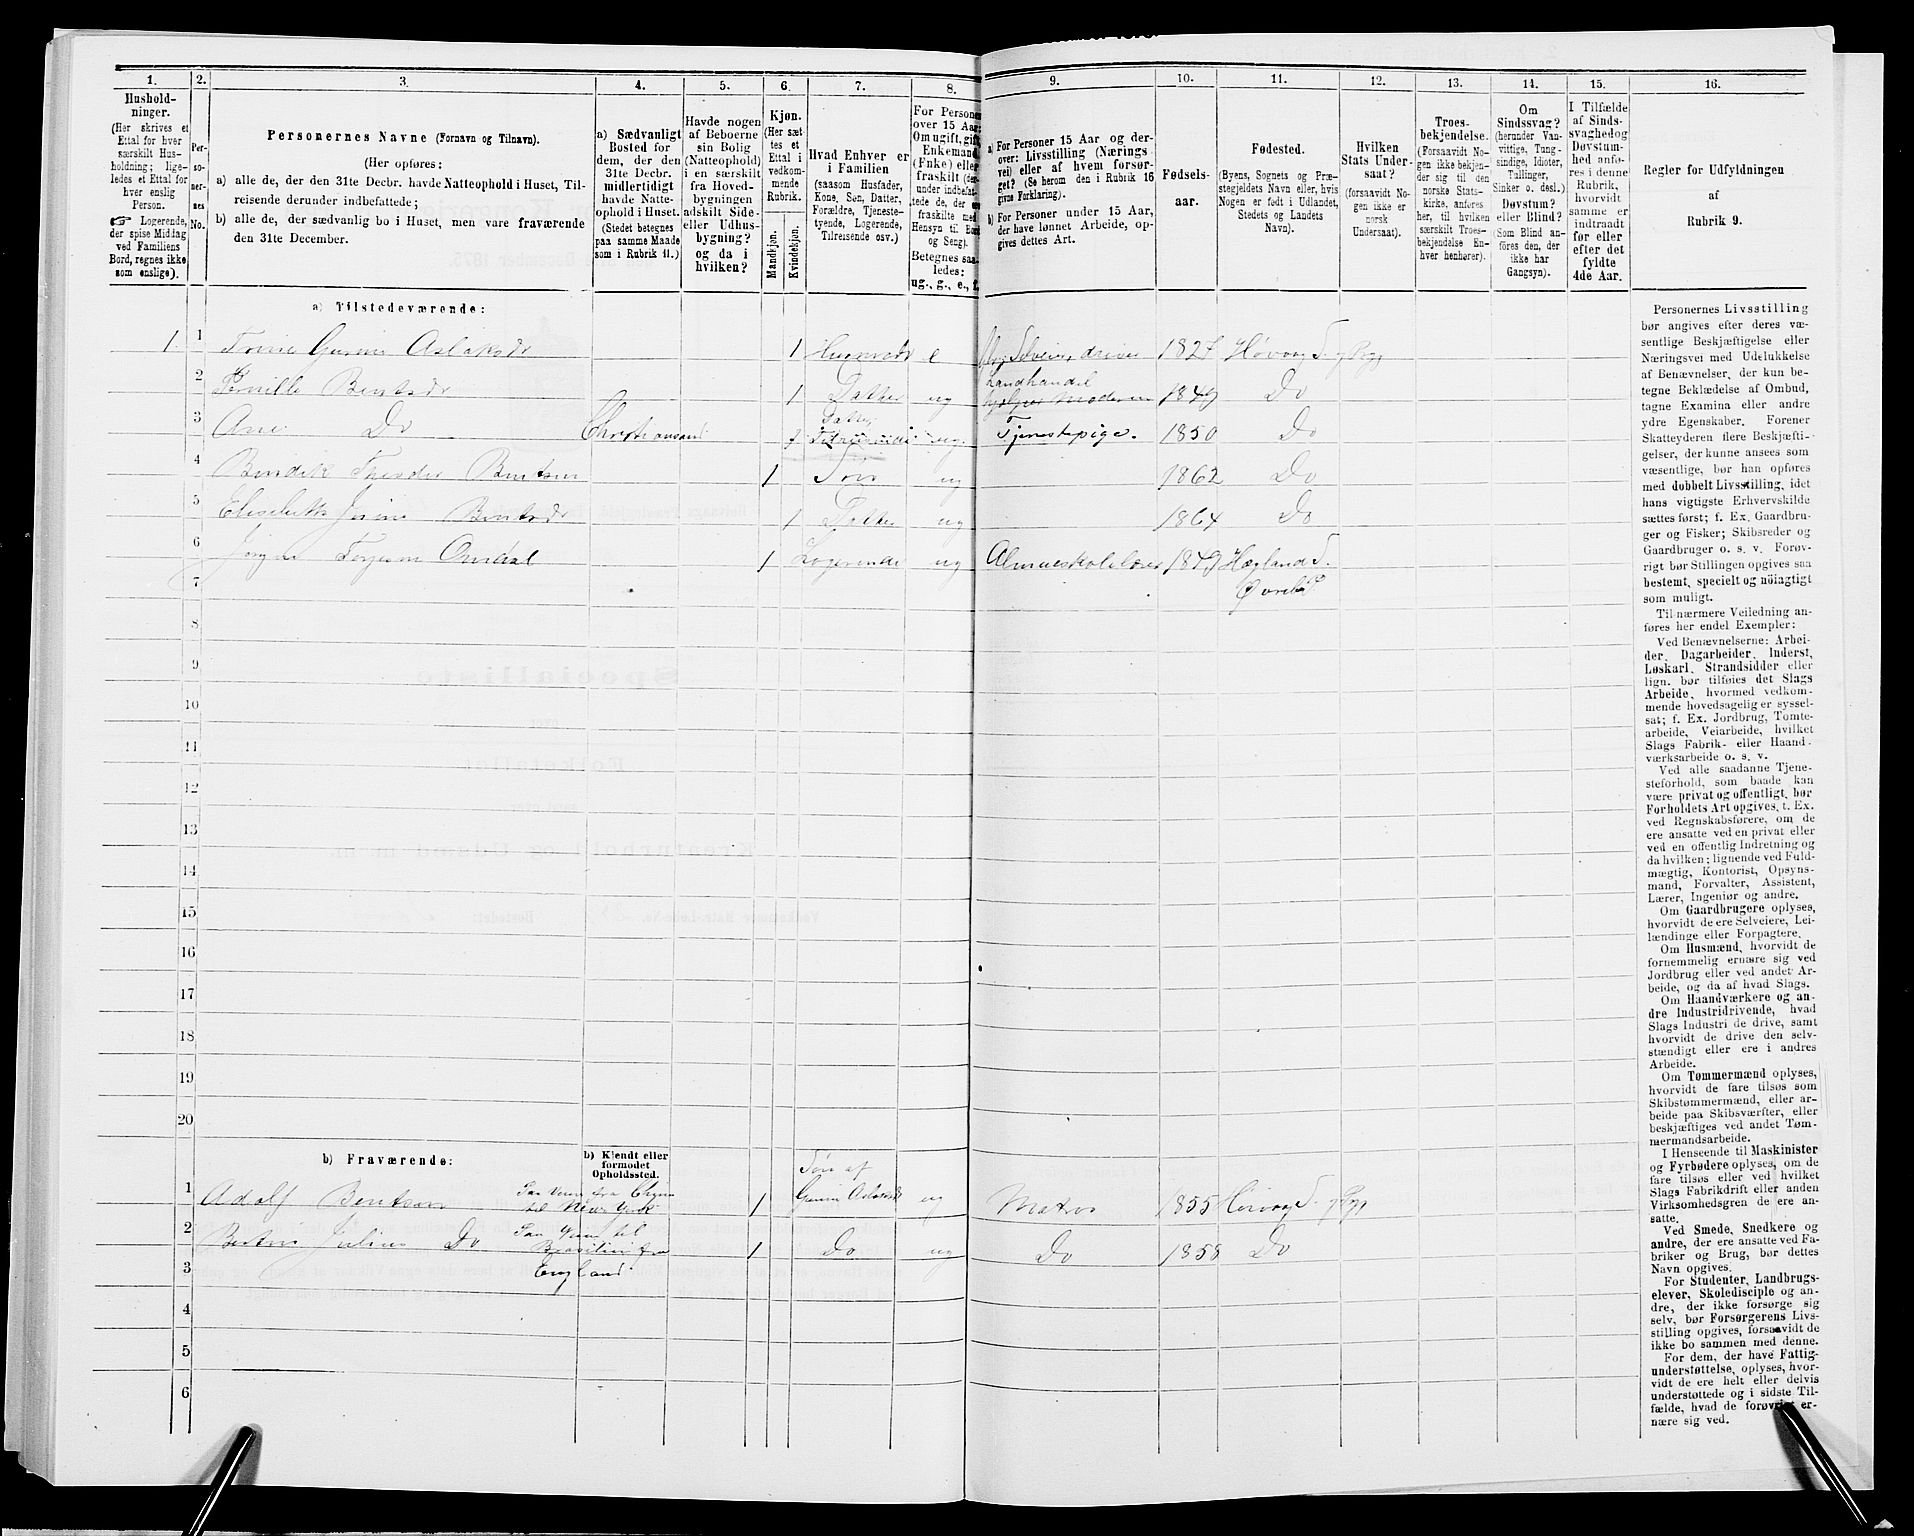 1.
Hushold-
ninger.
(Her skrives et
Ettal for hver
særskilt Hus-
holdning; lige-
ledes et Ettal for
hver enslig
Person.
☞ Logerende,
der spise Middag
ved Familiens
Bord, regnes ikke
som enslige).
2.
Per-
so-
ner-
nes
No.
3.
Personernes Navne (Fornavn og Tilnavn).
(Her opføres:
a) alle de, der den 31te Decbr. havde Natteophold i Huset, Til-
reisende derunder indbefattede;
b) alle de, der sædvanlig bo i Huset, men vare fraværende
den 31te December.
4.
a) Sædvanligt
Bosted for
dem, der den
31te Decbr.
midlertidigt
havde Natte-
ophold i Huset.
(Stedet betegnes
paa samme Maade
som i Rubrik 11.)
5.
Havde nogen
af Beboerne
sin Bolig
(Natteophold)
i en særskilt
fra Hoved-
bygningen
adskilt Side-
eller Udhus-
bygning?
og da i
hvilken?
6.
Kjøn.
(Her sæt-
tes et
Ettal i
vedkom-
mende
Rubrik.
Mandkjøn.
Kvindekjøn.
7.
Hvad Enhver er
i Familien
(saasom Husfader,
Kone, Søn, Datter,
Forældre, Tjeneste-
tyende, Logerende,
Tilreisende osv.)
8.
For Personer
over 15 Aar:
Om ugift, gift,
Enkemand
(Enke) eller
fraskilt (der-
under indbefat-
tede de, der ere
fraskilte med
Hensyn til Bord
og Seng).
Betegnes saa-
ledes:
ug., g., e., f.
9.
a) For Personer 15 Aar og der-
over: Livsstilling (Nærings-
vei) eller af hvem forsør-
get? (Se herom den i Rubrik 16
givne Forklaring).
b) For Personer under 15 Aar,
der have lønnet Arbeide, op-
gives dettes Art.
10.
Fødsels-
aar.
11.
Fødested.
(Byens, Sognets og Præ-
stegjeldets Navn eller, hvis
Nogen er født i Udlandet,
Stedets og Landets
Navn).
12.
Hvilken
Stats Under-
saat?
(forsaavidt No-
gen ikke er
norsk
Undersaat).
13.
Troes-
bekjendelse.
(Forsaavidt No-
gen ikke bekjen-
der sig til den
norske Stats-
kirke, anføres
her, til hvilken
særskilt Troes-
bekjendelse En-
hver henhører).
14.
Om
Sindssvag?
(herunder Van-
vittige, Tung-
sindige, Idioter,
Tullinger,
Sinker o. desl.)
Døvstum?
eller Blind?
(Som Blind an-
føres den, der
ikke har
Gangsyn).
15.
I Tilfælde
af Sinds-
svaghed og
Døvstum-
hed anfø-
res i denne
Rubrik,
hvorvidt
samme er
indtraadt
før eller
efter det
fyldte
4de Aar.
16.
Regler for Udfyldningen
af
Rubrik 9.
a) Tilstedeværende:
1 1 Trine Gurine Aslaksdr 1 e Selveier, driver Landhandel 1827 Høvaag S. og Pgj
2 Pernille Bentsdr 1 Datter ug hjelper Moderen 1849 Do
3 Ane Do Christiansand 1 Datter ug. Tjenestepige. 1850 Do
4 Bendik Theodor Bentsen 1 Søn ug 1862 Do
5 Elisabeth Josine Bentsdr 1 Datter ug 1864 Do
6 Jørgen Torjesen Omdal 1 Logerende ug Almueskolelærer 1849 Hægland S.
Øvrebø P
7
8
9
10
11
12
13
14
15
16
17
18
19
20
b) Fraværende:
b) Kjendt eller
formodet
Opholdssted.
Søn af
1 Adolf Bentsen til New York 1 Gurine Aslaksdr ug Matros 1855 Høvaag S. og Pgj
2 Julius Do til Brasilien fra England 1 Do ug Do 1858 Do
3
4
5
6
Personernes Livsstilling
bør angives efter deres væ-
sentlige Beskjæftigelse eller
Næringsvei med Udelukkelse
af Benævnelser, der kun be-
tegne Beklædelse af Ombud,
tagne Examina eller andre
ydre Egenskaber. Forener
Skatteyderen flere Beskjæfti-
gelser, der kunne ansees som
væsentlige, bør han opføres
med dobbelt Livsstilling, idet
hans vigtigste Erhvervskilde
sættes først; f. Ex. Gaardbru-
ger og Fisker; Skibsreder og
Gaardbruger o. s. v. Forøv-
rigt bør Stillingen opgives saa
bestemt, specielt og nöiagtigt
som muligt.
Til nærmere Veiledning an-
føres her endel Exempler:
Ved Benævnelserne: Arbei-
der, Dagarbeider, Inderst,
Løskarl, Strandsidder eller
lign. bør tilføies det Slags
Arbeide, hvormed vedkom-
mende hovedsagelig er syssel-
sat; f. Ex. Jordbrug, Tomte-
arbeide, Veiarbeide, hvilket
Slags Fabrik- eller Haand-
værksarbeide o. s. v.
Ved alle saadanne Tjene-
steforhold, som baade kan
være privat og offentligt, bør
Forholdets Art opgives, t. Ex.
ved Regnskabsførere, om de
ere ansatte ved en privat eller
ved en offentlig Indretning og
da hvilken; lignende ved Fuld-
mægtig, Kontorist, Opsyns-
mand, Forvalter, Assistent,
Lærer, Ingeniør og andre.
Om Gaardbrugere oplyses,
hvorvidt de ere Selveiere, Lei-
lændinge eller Forpagtere.
Om Husmænd, hvorvidt de
fornemmelig ernære sig ved
Jordbrug eller ved andet Ar-
beide, og da af hvad Slags.
Om Haandværkere og an-
dre Industridrivende, hvad
Slags Industri de drive, samt
hvorvidt de drive den selv-
stændigt eller ere i andres
Arbeide.
Om Tømmermænd oplyses,
hvorvidt de fare tilsøs som
Skibstømmermænd, eller ar-
beide paa Skibsværfter, eller
beskjæftiges ved andet Tøm-
mermandsarbeide.
I Henseende til Maskinister
og Fyrbødere oplyses, om de
fare tilsøs eller ved hvilket
Slags Fabrikdrift eller anden
Virksomhedsgren de ere an-
satte.
Ved Smede, Snedkere og
andre, der ere ansatte ved Fa-
briker og Brug, bør dettes
Navn opgives.
For Studenter, Landbrugs-
elever, Skoledisciple og an-
dre, der ikke forsørge sig
selv, bør Forsørgerens Livs-
stilling opgives, forsaavidt de
ikke bo sammen med denne.
For dem, der have Fattig-
understøttelse, oplyses, hvor-
vidt de ere helt eller delvis
understøttede og i sidste Til-
fælde, hvad de forøvrigt er-
nære sig ved.